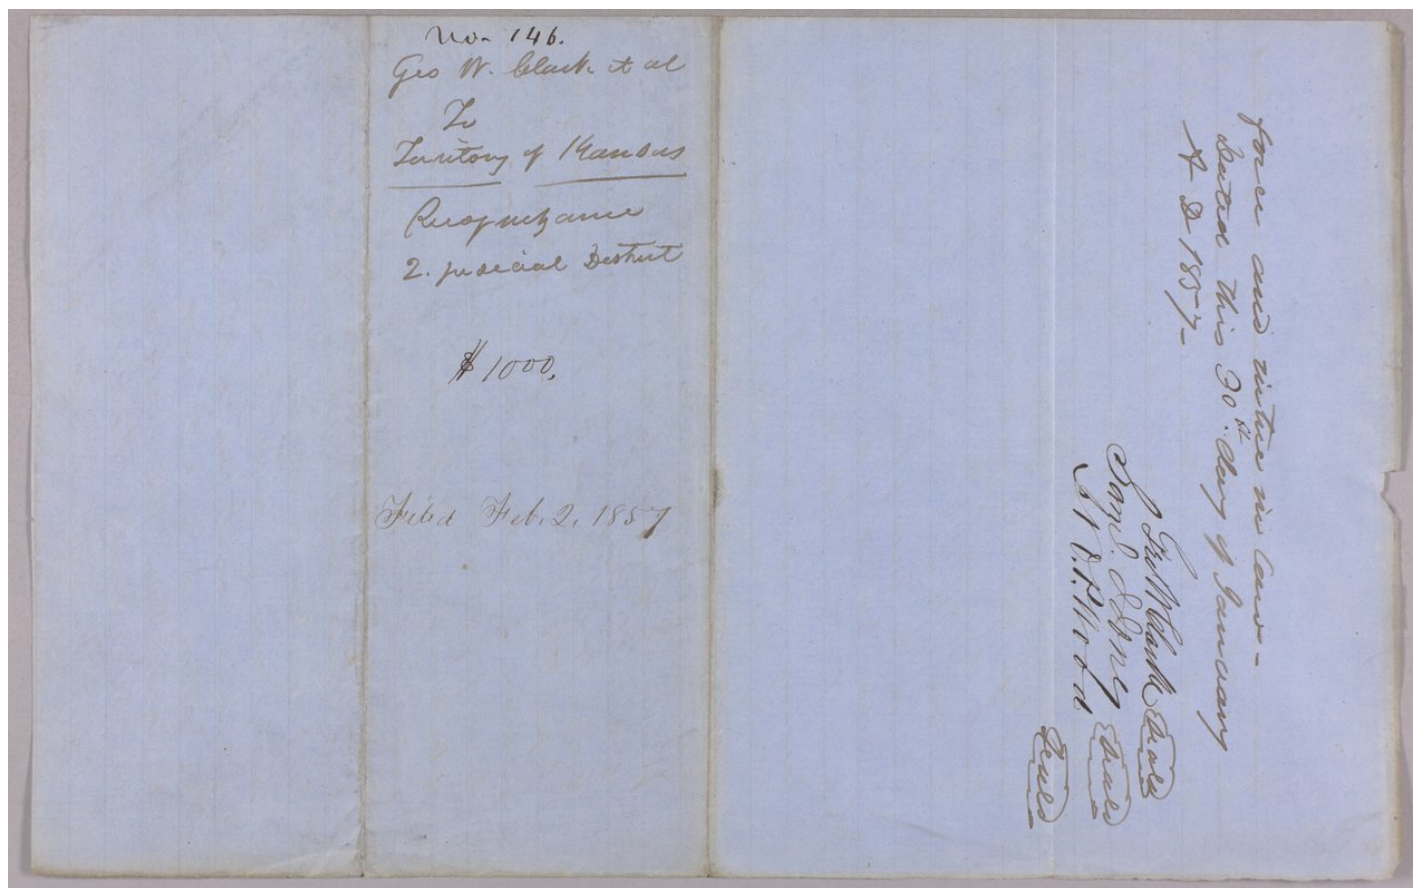 No. 146.
Geo W. Clark et al
To
Territory of Kansas
Recognizance
2. judicial District
$1000.
Filed Feb. 2, 1857
force and virtue in Law -
Dated this 30th. day of January
A D 1857-
Geo W Clark Seal
Saml. Seal
Wood Seal